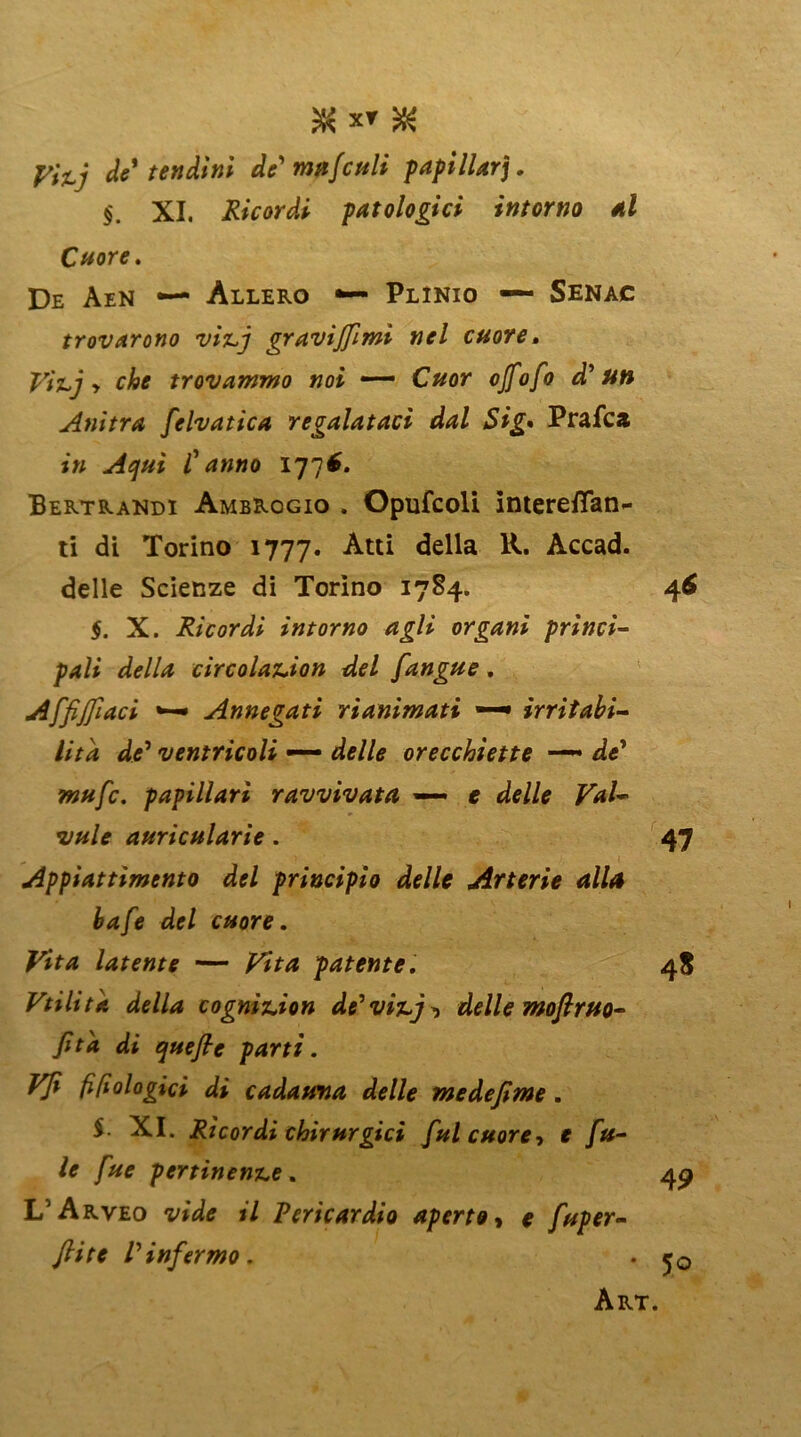 ⁂ xv ⁂
Vizj de' tendini de' muſculi papillarj.
§. XI. Ricordi patologici intorno al
Cuore.
De Aen — Allero — Plinio — Senac
trovarono vizj graviſſimi nel cuore.
Vizj, che trovammo noi — Cuor oſſoſo d' un
Anitra ſelvatica regalataci dal Sig. Praſca
in Aqui l' anno 1776.
Bertrandi Ambrogio . Opuſcoli intereſſan-
ti di Torino 1777. Atti della R. Accad.
delle Scienze di Torino 1784. 46
§. X. Ricordi intorno agli organi princi-
pali della circolazion del ſangue.
Aſfiſſiaci — Annegati rianimati — irritabi-
lità de' ventricoli — delle orecchiette — de'
muſc. papillari ravvivata — e delle Val-
vule auricularie. 47
Appiattimento del principio delle Arterie alla
baſe del cuore.
Vita latente — Vita patente. 48
Vtilità della cognizion de' vizj, delle moſtruo-
ſità di queſte parti.
Vſi fiſiologici di cadauna delle medeſime.
§. XI. Ricordi chirurgici ſul cuore, e ſu-
le ſue pertinenze. 49
L' Arveo vide il Pericardio aperto, e ſuper-
ſtite l' infermo. 50
Art.